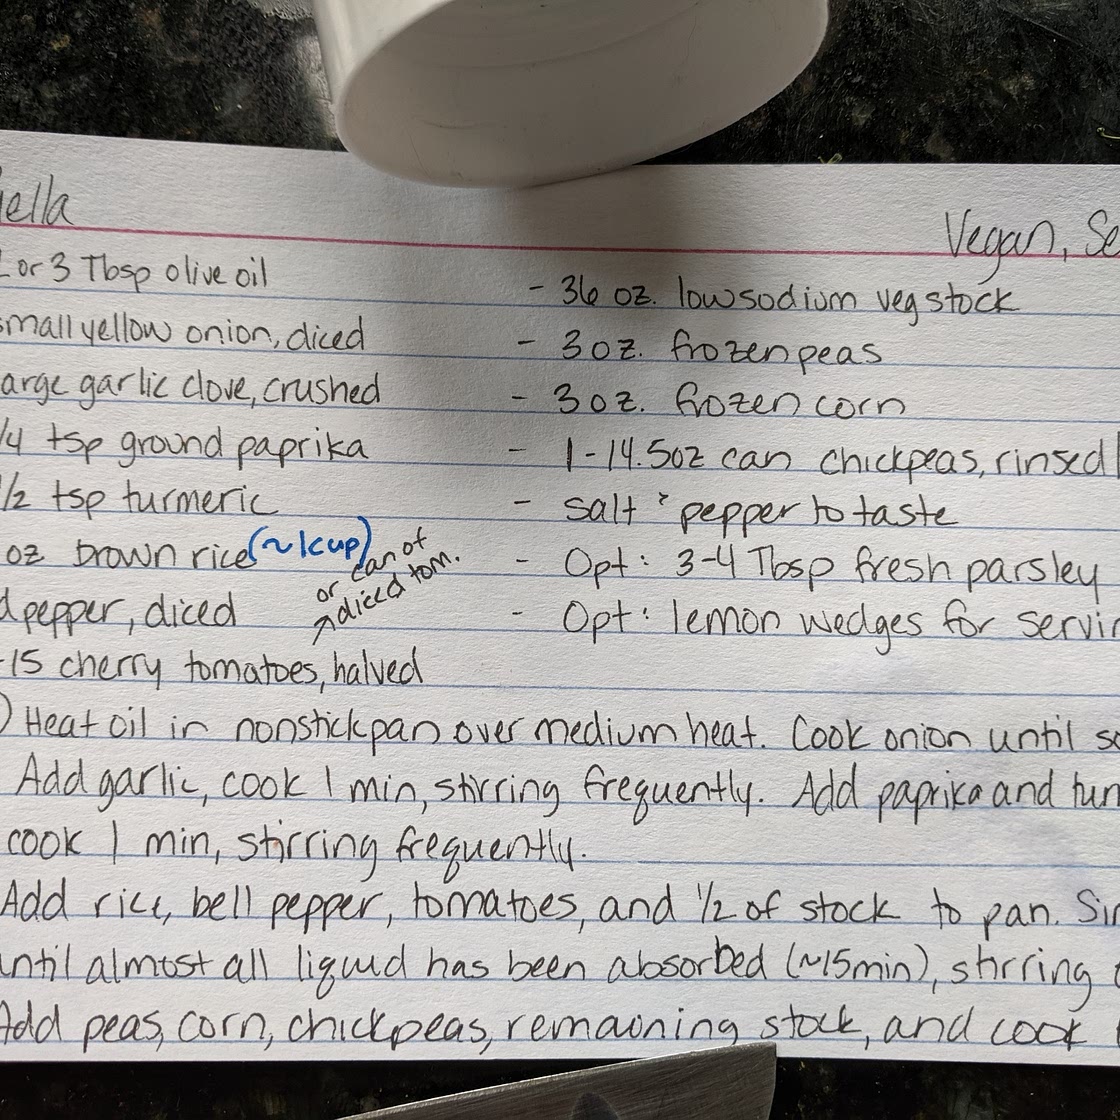 iella
Vegan, Se
2 or 3 Tbsp olive oil
small yellow onion, diced
arge garlic clove, crushed
1/4 tsp ground paprika
1/2 tsp turmeric
oz brown rice (~1cup)
d pepper, diced
or can of
↗diced tom.
-15 cherry tomatoes, halved
- 36 oz. low sodium veg stock
- 3 oz. frozen peas
- 3 oz. frozen corn
- 1-14.5oz can chickpeas, rinsed
- salt & pepper to taste
- Opt: 3-4 Tbsp fresh parsley
- Opt: lemon wedges for servin
) Heat oil in nonstick pan over medium heat. Cook onion until so
Add garlic, cook 1 min, stirring frequently. Add paprika and tur
cook 1 min, stirring frequently.
Add rice, bell pepper, tomatoes, and 1/2 of stock to pan. Sim
until almost all liquid has been absorbed (~15min), stirring
Add peas, corn, chickpeas, remaining stock, and cook